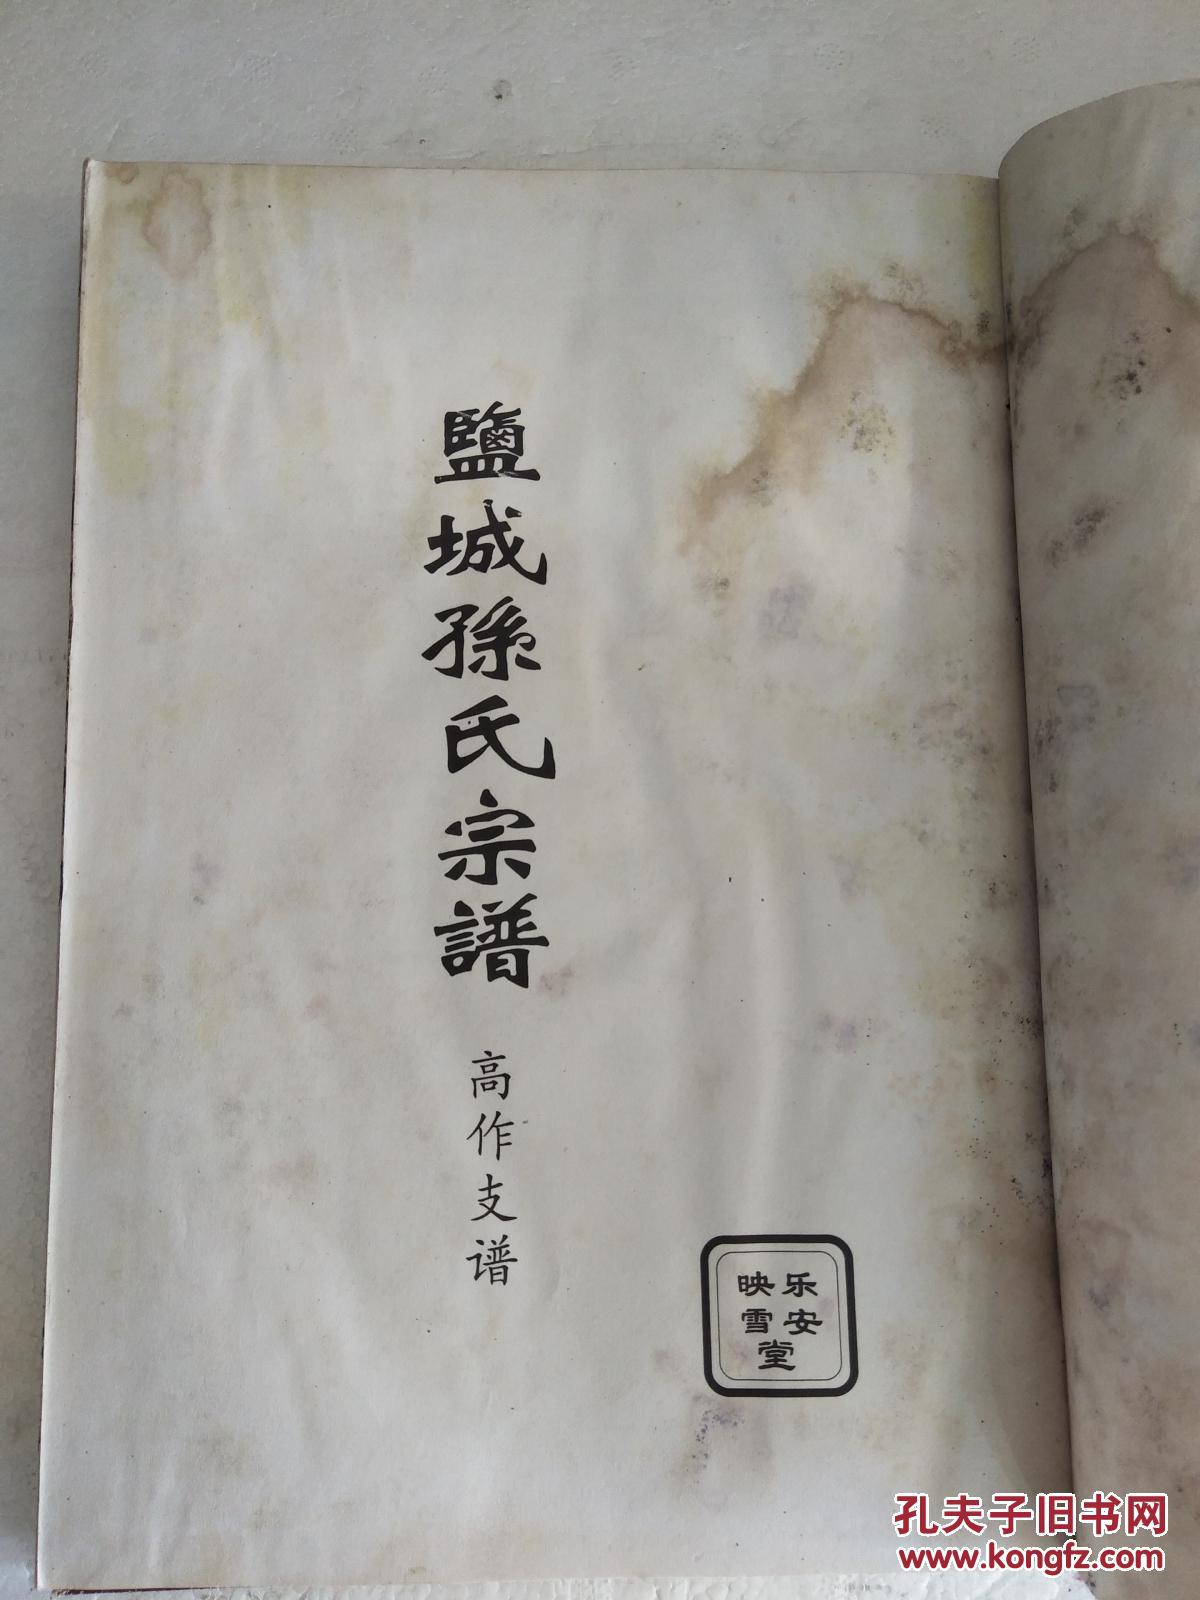 鹽城孫氏宗譜
高作支谱
乐安
映雪
堂
孔夫子旧书网
www.kongfz.com